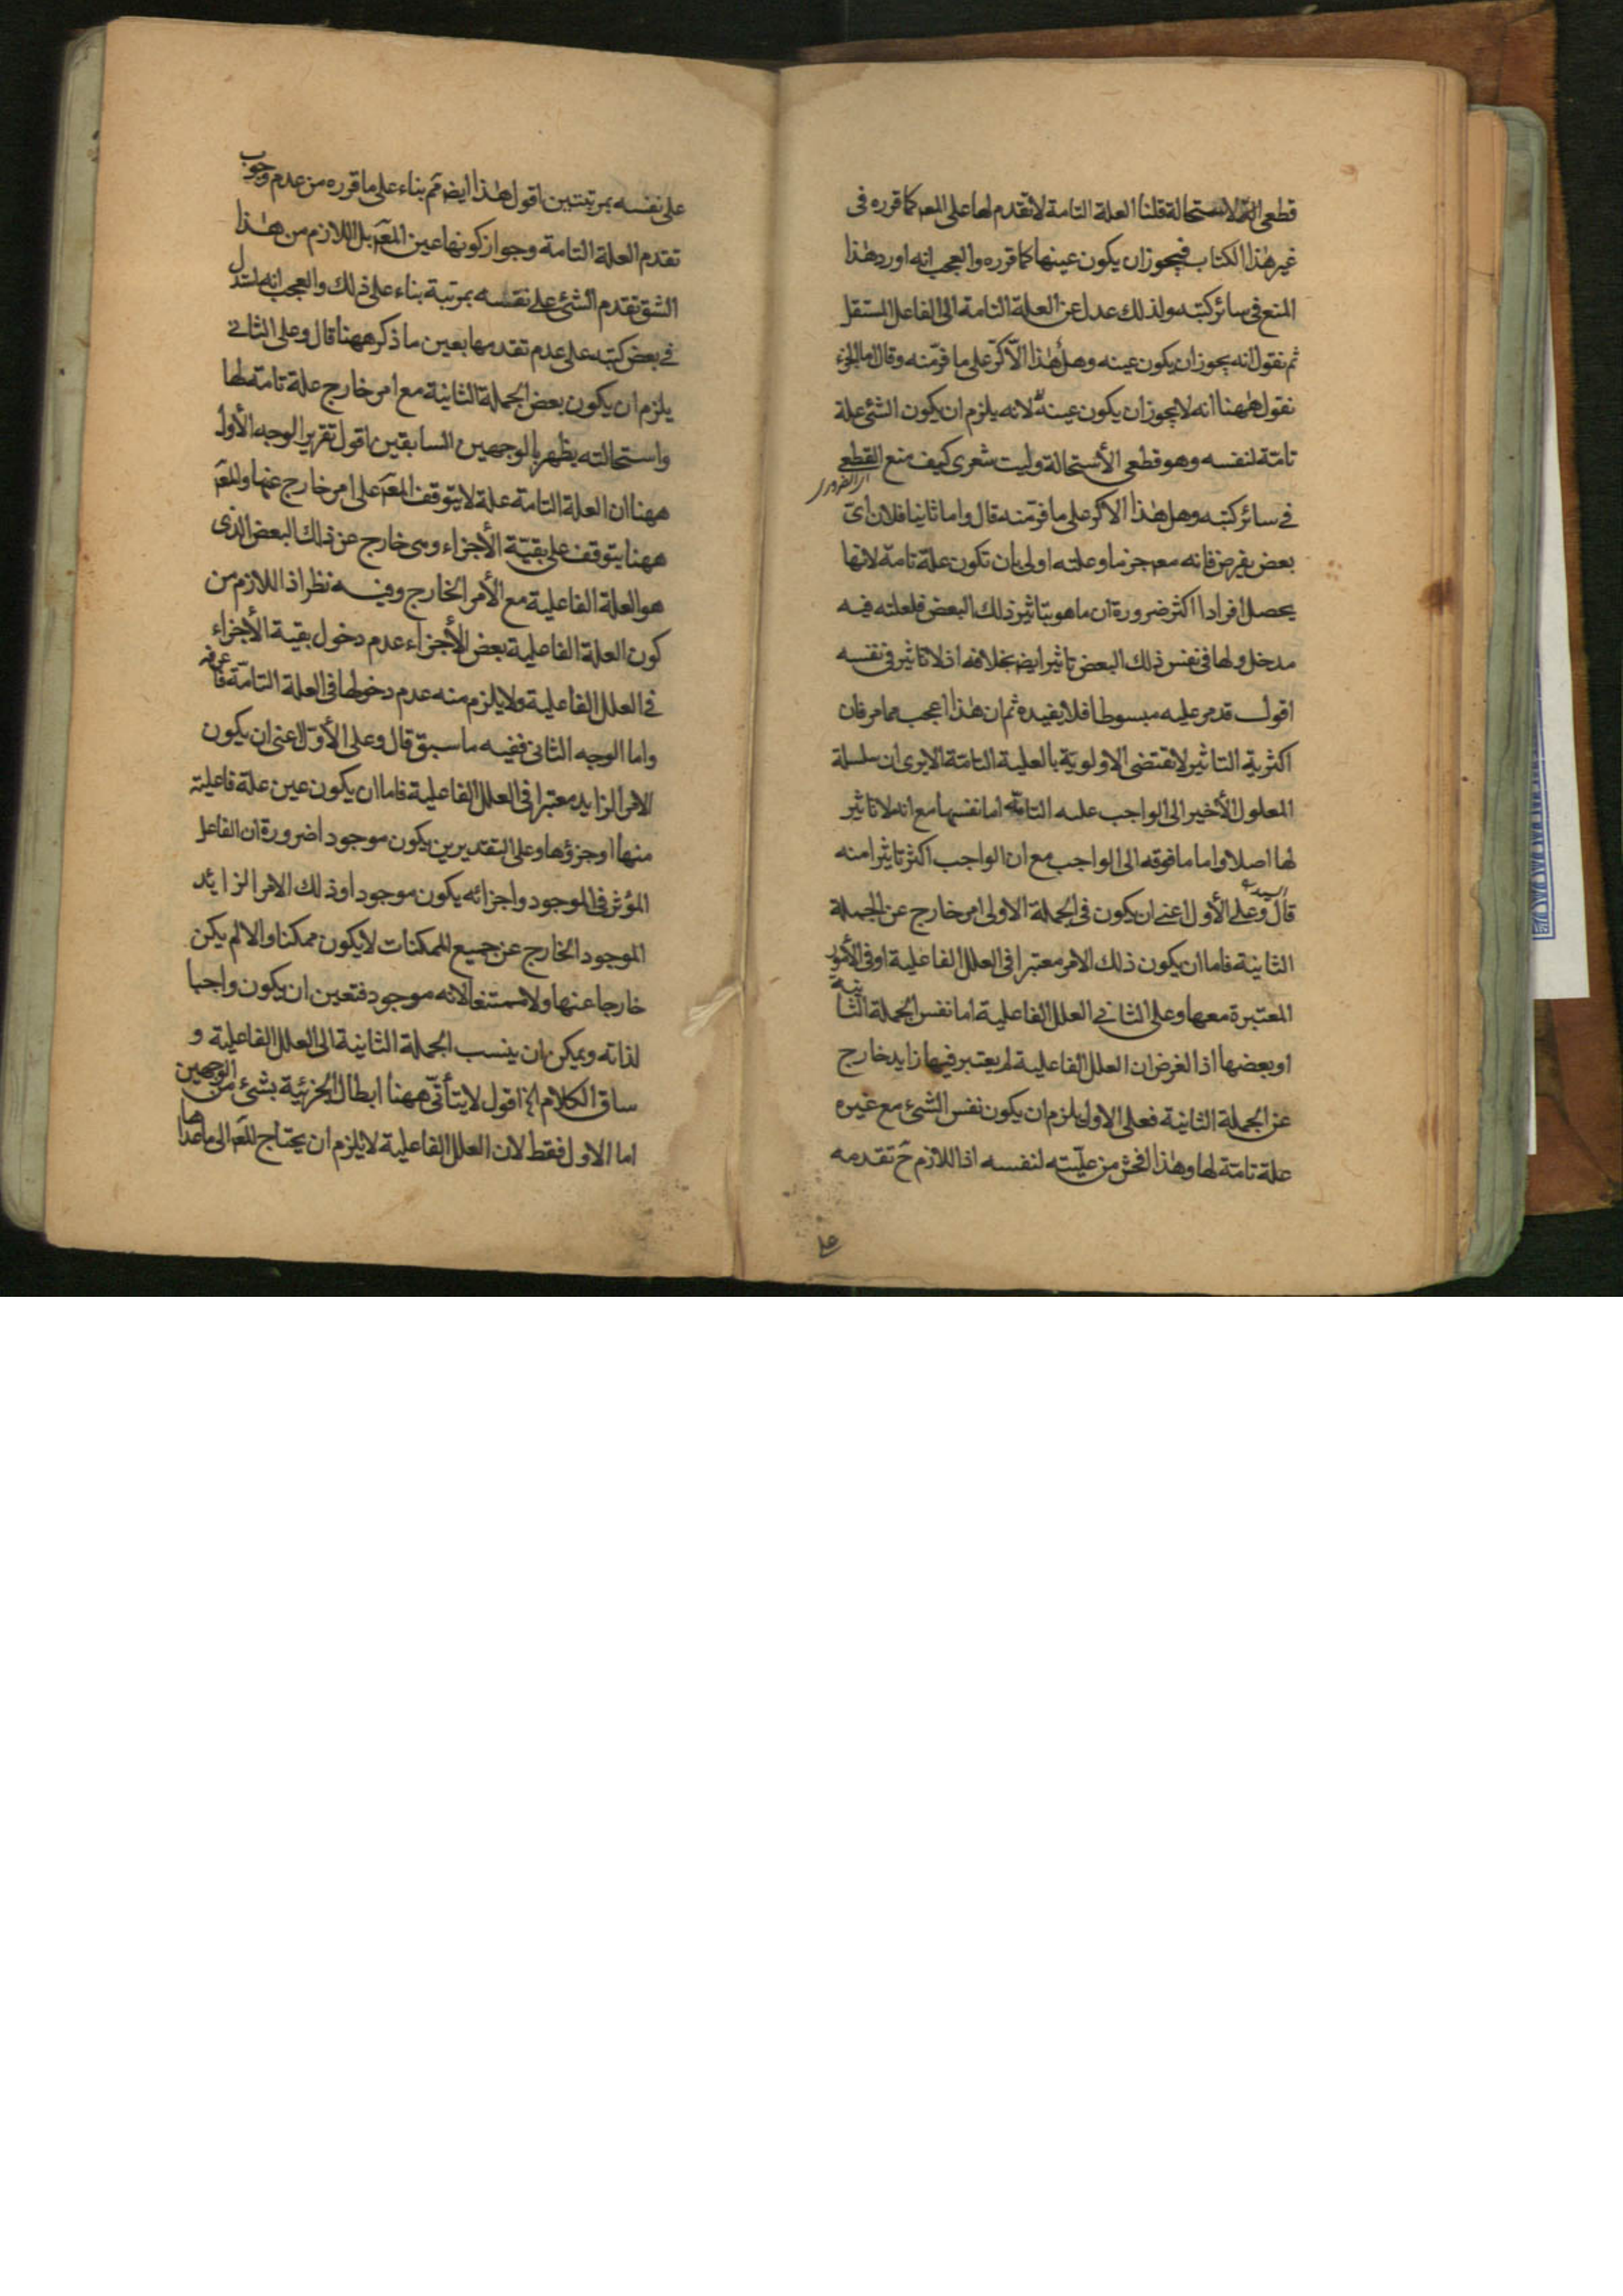 قطعى الاستحالة قلنا العلة التامة لا تقدم لها على المعه كما قرره فى
غير هذا الكتاب فيجوز ان يكون عينها كما قرره والعجب انه اورد هذا
المنع فى سائر كتبه ولذلك عدل عن العلة التامة الى الفاعل المستقل
ثم نقول انه يجوز ان يكون عينه وهل هذا الّا كرّ على ما فرّ منه وقال
نقول ههنا انه لا يجوز ان يكون عينه لانه يلزم ان يكون الشئ علة
تامة لنفسه وهو قطعى الأستحالة وليت شعرى كيف منع القطعى
فى سائر كتبه وهل هذا الا كر على ما فرّ منه قال واما ثانيا فلان اىّ
بعض يفرض فانه معه جزما وعلته اولى بان تكون علة تامة لانها
يحصل افرادا اكثر ضرورة ان ما هو بتاثير ذلك البعض فلعلته فيه
مدخل ولها فى نفس ذلك البعض تاثير ايضا بخلافه اذ لا تاثير فى نفسه
اقول قد مر عليه مبسوطا فلا يفيده ثم ان هذا اعجب مما مر فان
اكثرية التاثير لا تقتضى الاولويّة بالعلية التامّة الا يرى ان سلسلة
المعلول الأخير الى الواجب علته التامّة اما نفسها مع انه لا تاثير
لها اصلا واما ما فوقه الى الواجب مع ان الواجب اكثر تاثيرا منه
قال وعلى الأول اعنى ان يكون فى الجملة الاولى امر خارج عن الجملة
الثانية فاما ان يكون ذلك الامر معتبرا فى العلل الفاعلية او فى الأمور
المعتبرة معها وعلى الثانى العلل الفاعلية اما نفس الجملة الثانية
او بعضها اذ الغرض ان العلل الفاعلية لم يعتبر فيها زايد خارج
عن الجملة الثانية فعلى الاول يلزم ان يكون نفس الشئ مع غيره
علة تامّة لها وهذا افحش من علّيته لنفسه اذ اللازم ح تقدمه
على
على نفسه بمرتبتين اقول هذا ايضا مم بناء على ما قرره من عدم وجوب
تقدم العلة التامة وجواز كونها عين المعه بل اللازم من هذا
الشق تقدم الشئ على نفسه بمرتبة بناء على ذلك والعجب انه استدل
فى بعض كتبه على عدم تقدمها بعين ما ذكر ههنا قال وعلى الثانى
يلزم ان يكون بعض الجملة الثانية مع امر خارج علة تامّة لها
واستحالته يظهر بالوجهين السابقين اقول تقرير الوجه الأول
ههنا ان العلة التامة علة لا يتوقف المعه على امر خارج عنها والمعه
ههنا يتوقف على بقيّة الأجزاء وهى خارج عن ذلك البعض الذى
هو العلة الفاعلية مع الأمر الخارج وفيه نظر اذ اللازم من
كون العلة الفاعلية بعض الأجزاء عدم دخول بقية الأجزاء
فى العلل الفاعلية ولا يلزم منه عدم دخولها فى العلة التامّة فاعرفه
واما الوجه الثانى ففيه ما سبق قال وعلى الأوّل اعنى ان يكون
الامر الزايد معتبرا فى العلل الفاعلية فاما ان يكون عين علة فاعلية
منها او جزؤها وعلى التقديرين يكون موجودا ضرورة ان الفاعل
المؤثر فى الموجود واجزائه يكون موجودا وذلك الامر الزائد
الموجود الخارج عن جميع الممكنات لا يكون ممكنا والا لم يكن
خارجا عنها ولا ممتنعا لانه موجود فتعين ان يكون واجبا
لذاته ويمكن ان ينسب الجملة الثانية الى العلل الفاعلية و
ساق الكلام الخ اقول لا يتأتّى ههنا ابطال الجزئية بشئ من الوجهين
اما الاول فقط لان العلل الفاعلية لا يلزم ان يحتاج المعه الى ما عداها